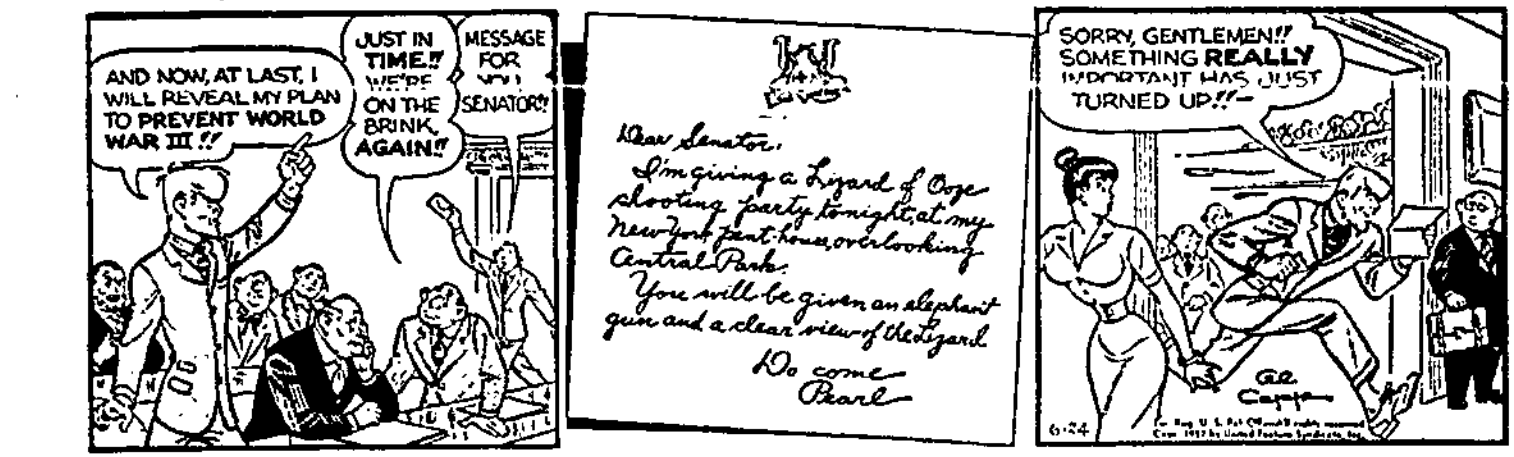 AND NOW, AT LAST, I
WILL REVEAL MY PLAN
TO PREVENT WORLD
WAR III!!
JUST IN
TIME!!
WE'RE
ON THE
BRINK,
AGAIN!!
MESSAGE
FOR
YOU,
SENATOR!!
Dear Senator,
I'm giving a Lizard of Ooze
shooting party tonight, at my
New York pent-house, overlooking
Central Park.
You will be given an elephant
gun and a clear view of the Lizard
Do come
Pearl
SORRY, GENTLEMEN!!
SOMETHING REALLY
IMPORTANT HAS JUST
TURNED UP!!—
Al
Capp
6-24
Reg. U. S. Pat. Off.—All rights reserved
Copr. 1957 by United Feature Syndicate, Inc.